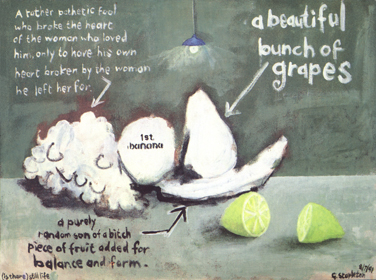 A rather pathetic fool
who broke the heart
of the woman who loved
him, only to have his own
heart broken by the woman
he left her for.
a beautiful
bunch of
grapes
1st.
banana
a purely
random son of a bitch
piece of fruit added for
balance and form.
(Is there) still life